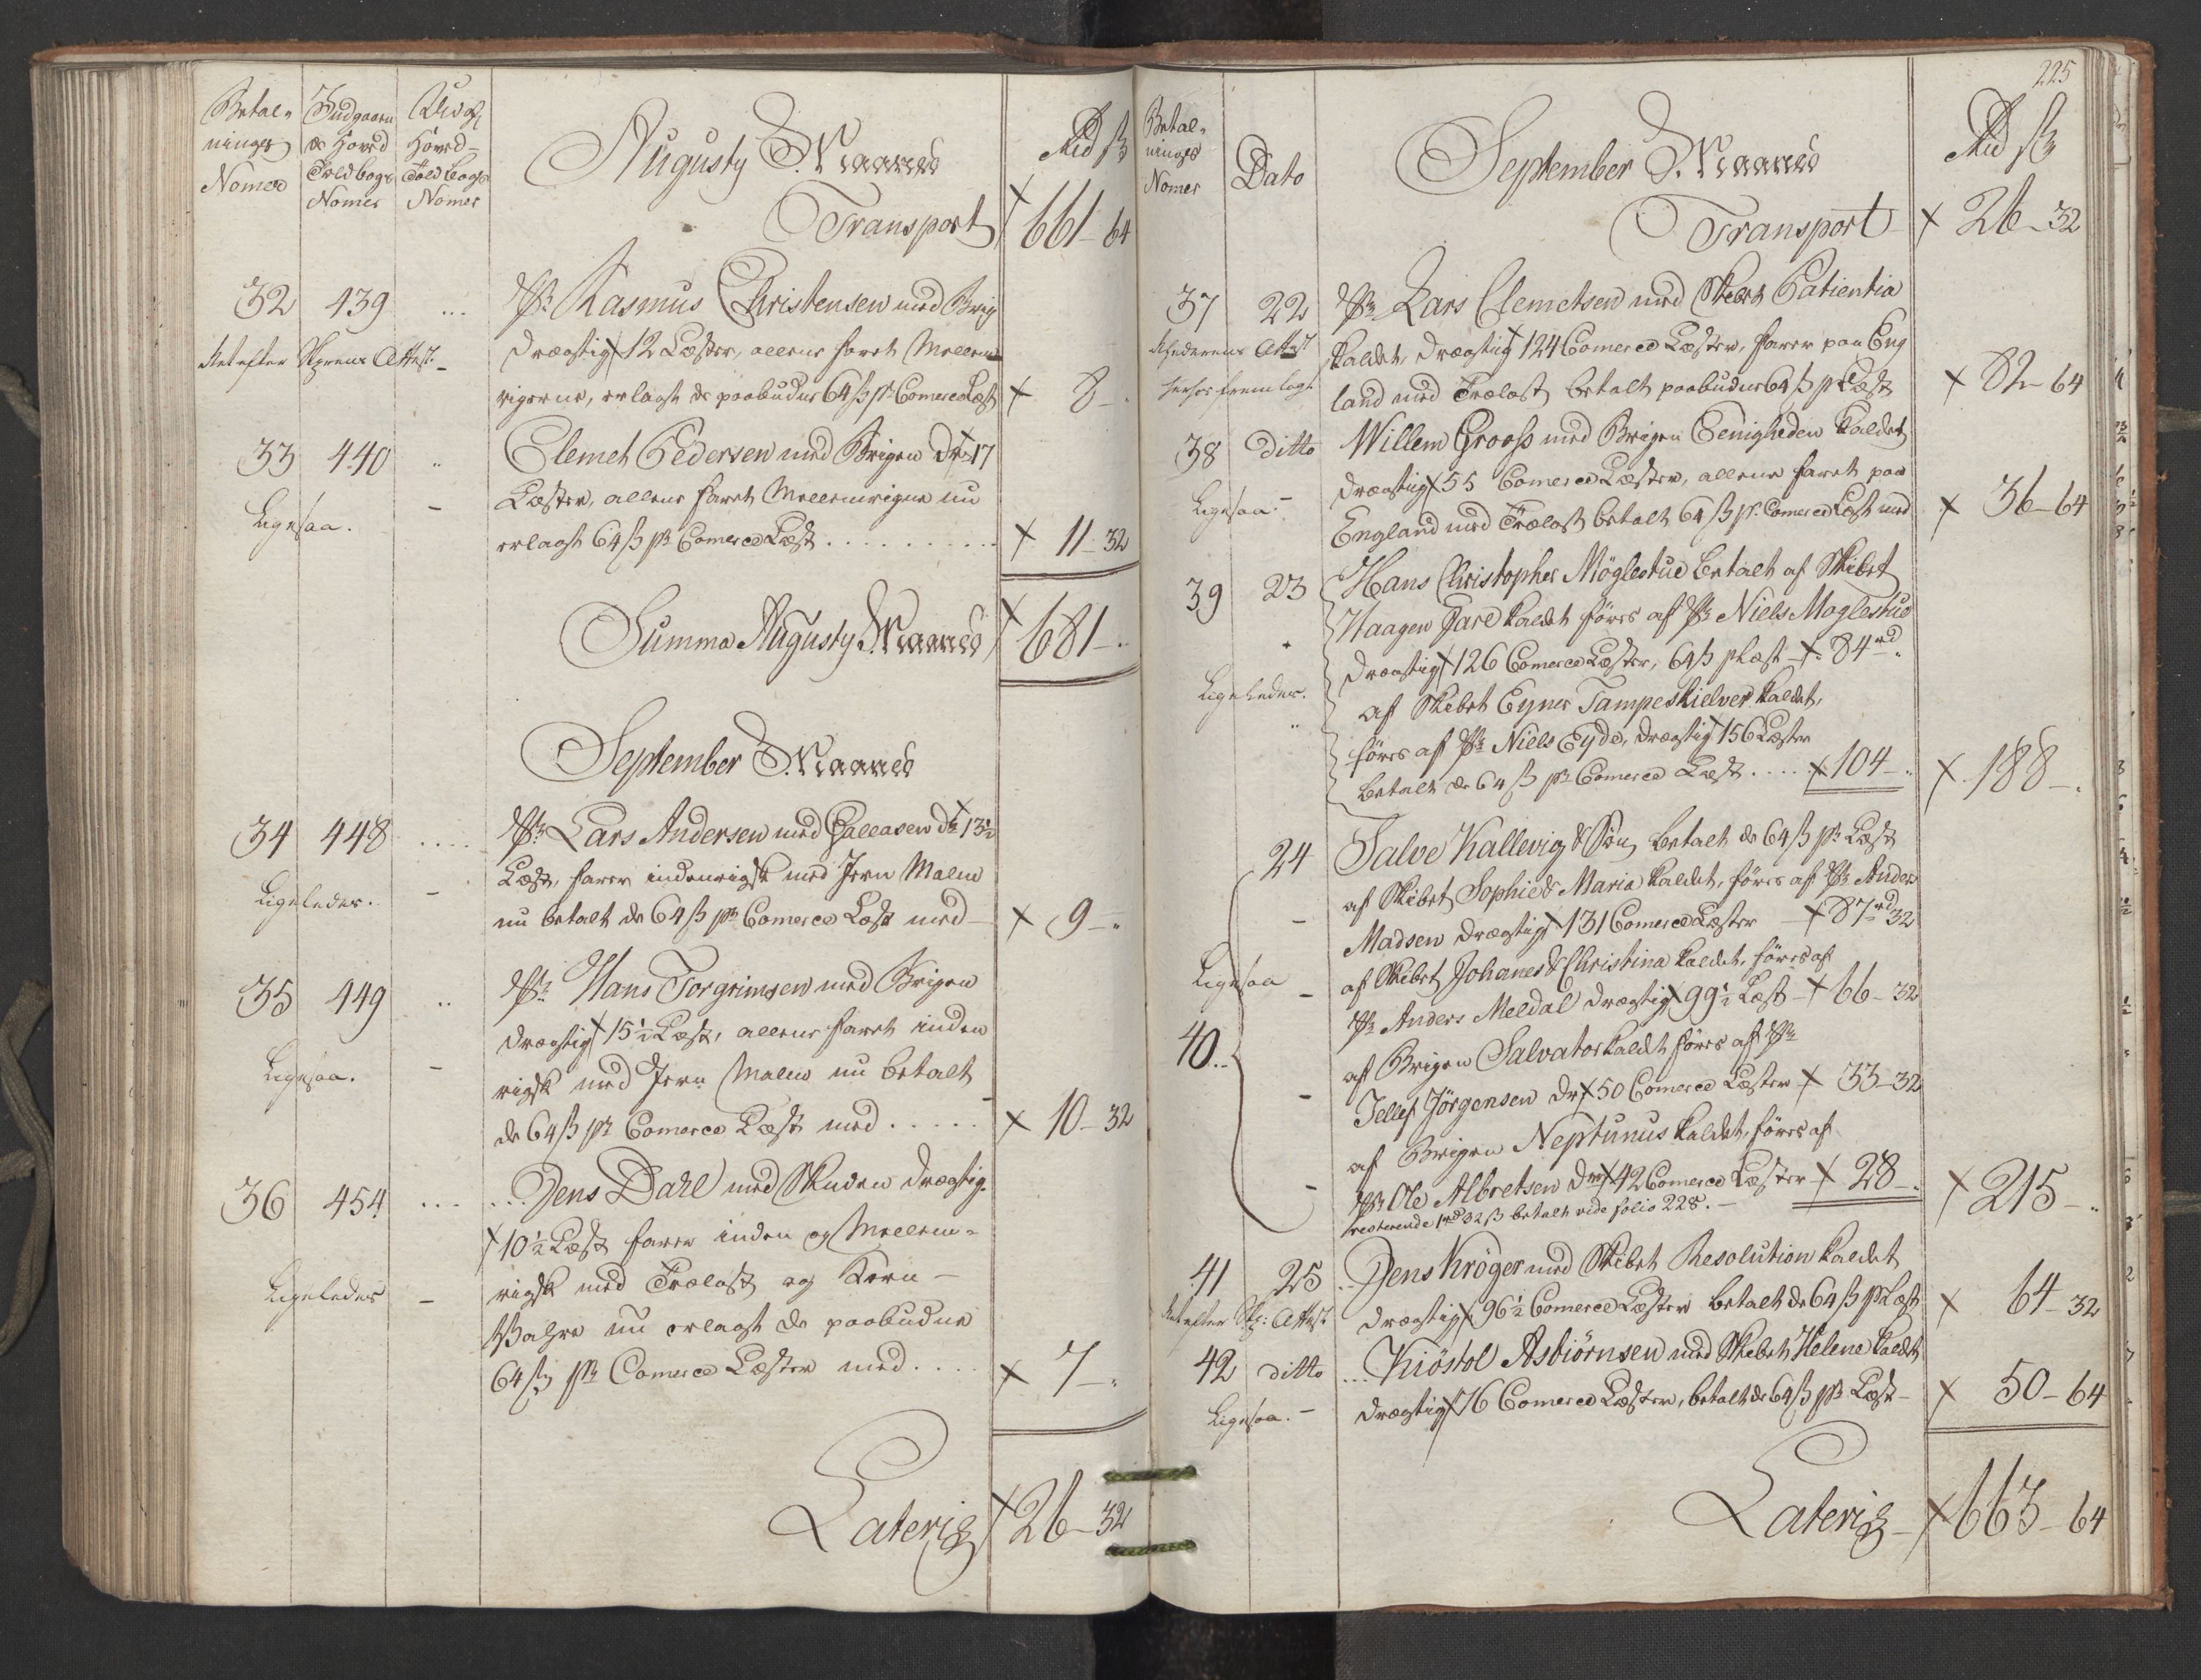 Betal-
ninges
Nomer
Indgaaen
de Hoved
Toldbogs
Nomer
Udg:
Hoved-
Toldbogs
Nomer
Augusty Maaned
Rd ß
Transport 661-64
32 439 ... Skpr Rasmus Christensen med Brig
Drægtig 12 Læster, allene faret Mellem
Ret efter Skprens Attest
rigerne, erlagt de paabudne 64 ß pr Comerce Læst 8-.
33 440 .. Clemet Pedersen med Brigen Dr 17
Læster, allene faret Mellemrigne nu
Ligesaa. -
erlagt 64 ß pr Comerce Læst .......... 11-32
Summa Augusty Maaned 681-..
September Maaned
34 448 .... Skpr Lars Andersen med Galleasen Dr 13½
Læst, farer indenrigsk med Jern Malm
Ligeledes. -
nu betalt de 64 ß pr Comerce Læst med - 9-..
35 449 .. Skpr Hans Torgrimsen med Brigen
Drægtig 15½ Læst, allene faret inden
Ligesaa. -
rigsk med Jern Malm nu betalt
de 64 ß pr Comerce Læst med ..... 10-32
36 454 .... ... Jens Dahl med Skuden drægtig.
10½ Læst farer inden og Mellem-
rigsk med Trælast og Korn-
Ligeledes -
Vahre nu erlagt de paabudne
64 ß pr Comerce Læster med .... 7-..
Lateris 26-32
225
Betal-
ninges
Nomer
Dato
September Maaned
Rd ß
Transport - 26-32
37 22 Skpr Lars Clemetsen med Skibet Patientia
Rhederens Attest
kaldet, drægtig 124 Comerce Læster, farer paa Eng
herfor fremlagt
land med Trælast betalt paabudne 64 ß p Læst 82-64
38 Ditto Willem Grooss med Brigen Eenigheden kaldet
drægtig 55 Comerce Læster, allene faret paa
Ligesaa. -
England med Trælast betalt 64 ß pr Comerce Læst med 36-64
39 23 Hans Christopher Möglestue betalt af Skibet
Haagen Jarl kaldet föres af Skpr Niels Moglestue
drægtig 126 Comerce Læster, 64 ß p Læst - 84 rd ..
Ligeledes.
af Skibet Eyner Tampeskielver kaldet,
föres af Skpr Niels Eyde, drægtig 156 Læster
betalt de 64 ß pr Comerce Læst ..... 104-.. 188-.
24 Salve Kallevig & Søn betalt de 64 ß pr Læst
af Skibet Sophie & Maria kaldet, föres af Skpr Anders
Madsen drægtig 131 Comerce Læster - 87 rd 32
Ligesaa
af Skibet Johanes & Christina kaldet, föres af
Skpr Anders Meldal drægtig 99½ Læst - 66-32
40..
af Brigen Salvator kaldet föres af Skpr
Jellef Jörgensen Dr 50 Comerce Læster - 33-32
af Brigen Neptunus kaldet, föres af
Skpr Ole Albretsen Dr 42 Comerce Læster - 28-.. 215-..
resterende 1 rd 32 ß betalt vide folio 228. -
41 25 .. Jens Kröger med Skibet Resolution kaldet
Ret efter Skp: Attest
drægtig 96½ Comerce Læster betalt de 64 ß p Læst 64-32
42 ditto ... Kiöstol Asbiörnsen med Skibet Helene kaldet
Ligesaa. -
drægtig 76 Comerce Læster, betalt de 64 ß pr Læst - 50-64
Lateris - 663-64